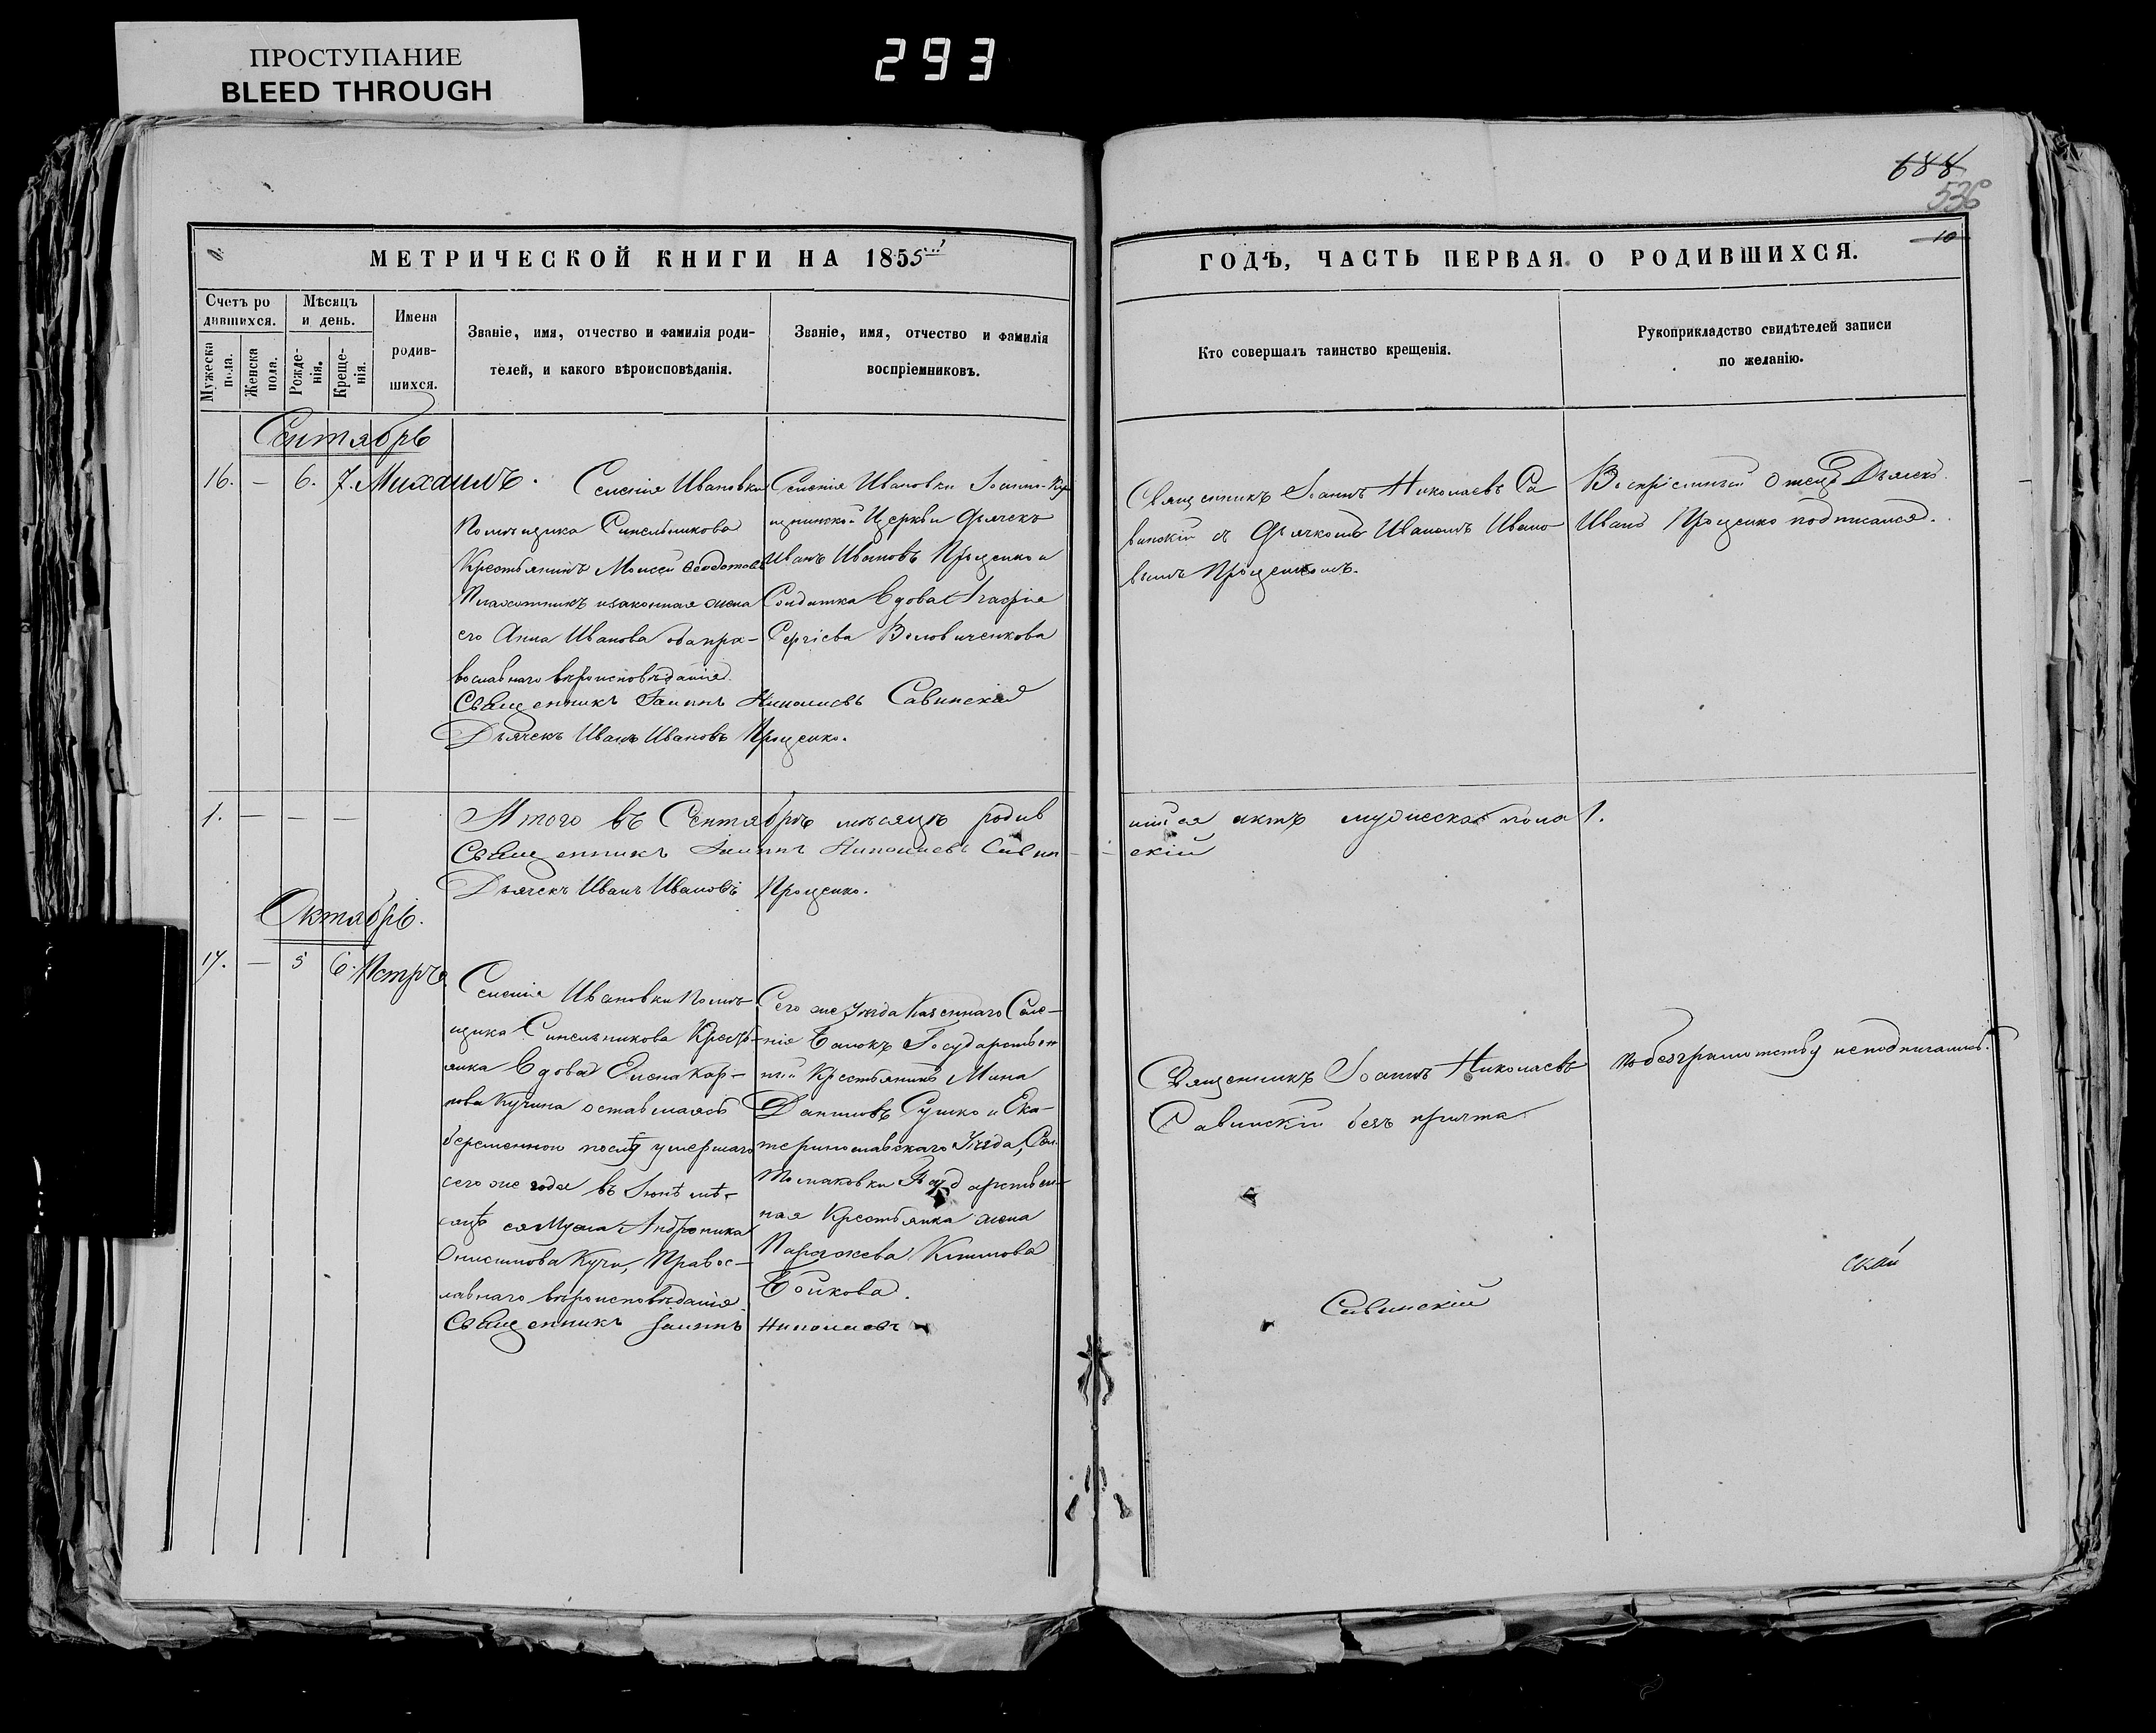 ПРОСТУПАНИЕ
BLEED THROUGH
293
688
536
10
МЕТРИЧЕСКОЙ КНИГИ НА 1855
ГОДЪ, ЧАСТЬ ПЕРВАЯ О РОДИВШИХСЯ.
Счетъ ро
дившихся.
Мужеска
пола.
Женска
пола.
Мѣсяцъ
и день.
Рожде-
нія.
Креще-
нія.
Имена
родив-
шихся.
Званіе, имя, отчество и фамилія роди-
телей, и какого вѣроисповѣданія.
Званіе, имя, отчество и фамилія
воспріемниковъ.
Кто совершалъ таинство крещенія.
Рукоприкладство свидѣтелей записи
по желанію.
Сентябрь
16. — 6. 7. Михаилъ.
Селенія Ивановки
Помѣщика Синельникова
Крестьянинъ Моисей Ѳеодотовъ
и законная жена
его Анна Иванова оба пра-
вославнаго вѣроисповѣданія.
Селенія Ивановки Іоанно-
Церкви Дьячекъ
Иванъ Ивановъ Проценко и
Солдатка Вдова Агафія
Сергіева Воловиченкова
Священникъ Іоаннъ Николаевъ Савинскій
Дьячекъ Иванъ Ивановъ Проценко.
Священникъ Іоаннъ Николаевъ Са
винскій съ Дьячкомъ Иваномъ Ивано
вымъ Проценкомъ.
Воспріемный Отецъ Дьячекъ
Иванъ Проценко подписался.
1. — — —
Итого въ Сентябрѣ мѣсяцѣ родив
шихся актъ мужеска пола 1.
Священникъ Іоаннъ Николаевъ Савин-
скій
Дьячекъ Иванъ Ивановъ Проценко.
Октябрь.
17. — 5 6. Петръ
Селенія Ивановки Помѣ-
щика Синельникова Кресть-
янка Вдова Елена Кар-
пова Кучина оставшаясь
беременною послѣ умершаго
сего же года въ Іюнѣ мѣ-
сяцѣ ея Мужа Андроника
Онисимова Кучи, Правос-
лавнаго вѣроисповѣданія
Сего же Уѣзда Казеннаго Селе-
нія Государствен
ный Крестьянинъ Мина
Даниловъ Сушко и Ека-
теринославскаго Уѣзда, Сел.
Томаковки Государствен-
ная Крестьянка жена
Климова
Бойкова.
Священникъ Іоаннъ Николаевъ
Савинскій
Священникъ Іоаннъ Николаевъ
Савинскій безъ причта.
По безграмотству неподписались.
скій